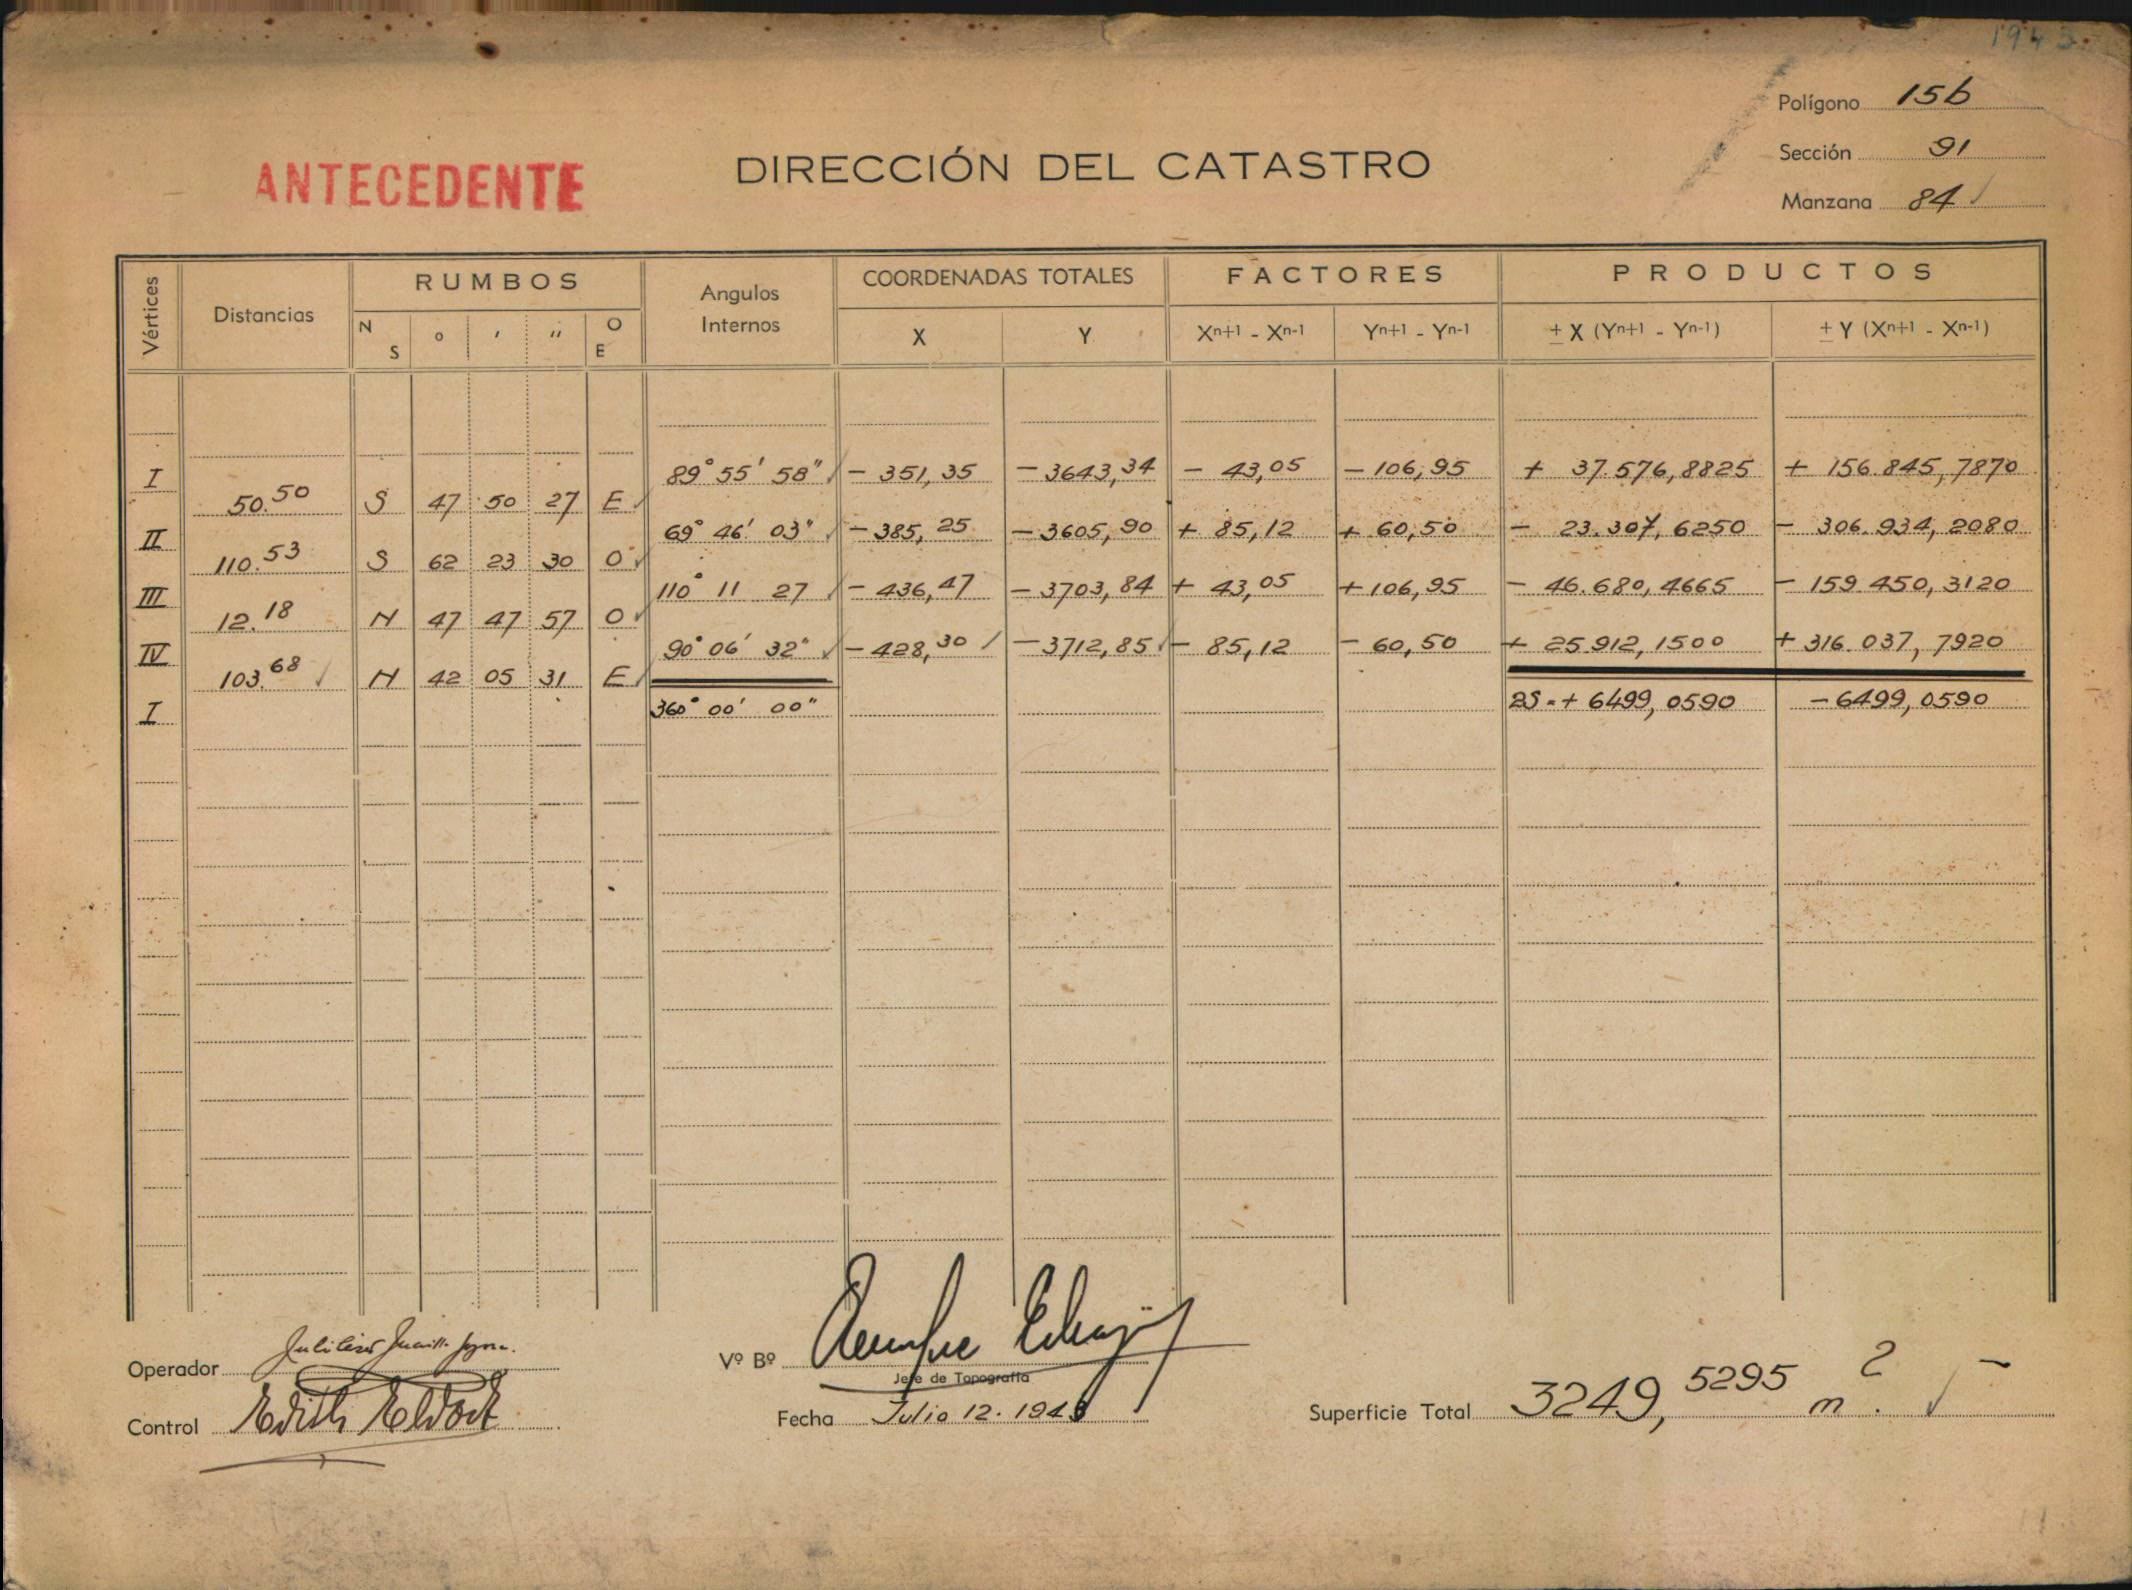 1943
Polígono 156
Sección 91
Manzana 84 ✓
ANTECEDENTE
DIRECCIÓN DEL CATASTRO
Vértices Distancias RUMBOS Angulos Internos COORDENADAS TOTALES FACTORES PRODUCTOS
N S ° ' " O E X Y Xn+1 - Xn-1 Yn+1 - Yn-1 ± X (Yn+1 - Yn-1) ± Y (Xn+1 - Xn-1)
I 89° 55' 58" ✓ - 351,35 - 3643,34 - 43,05 - 106,95 + 37.576,8825 + 156.845,7870
50.50 S 47 50 27 E ✓
II 69° 46' 03" ✓ - 385,25 - 3605,90 + 85,12 + 60,50 - 23.307,6250 - 306.934,2080
110.53 S 62 23 30 O ✓
III 110° 11 27 ✓ - 436,47 - 3703,84 + 43,05 + 106,95 - 46.680,4665 - 159.450,3120
12.18 N 47 47 57 O ✓
IV 90° 06' 32" ✓ - 428,30 ✓ - 3712,85 ✓ - 85,12 - 60,50 + 25.912,1500 + 316.037,7920
103.68 ✓ N 42 05 31 E ✓
I 360° 00' 00" 2S = + 6499,0590 - 6499,0590
Operador
Control
Vº Bº
Jefe de Topografía
Fecha Julio 12. 1943
Superficie Total 3249,5295 m². ✓ -